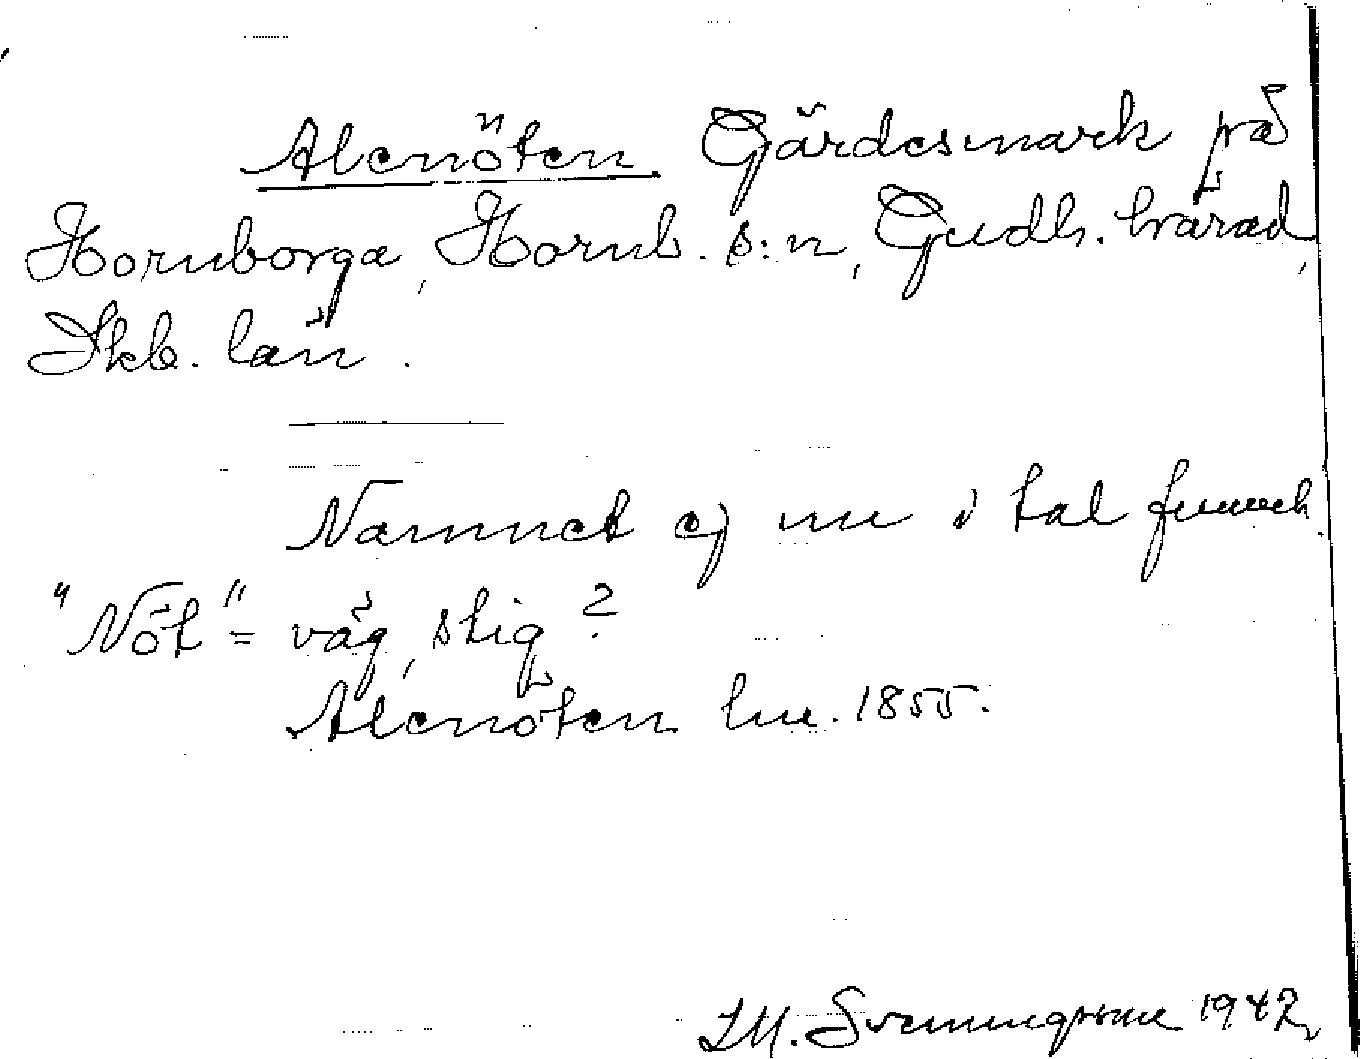 Alenöten Gärdesmark på
Hornborga, Hornb. s:n, Gudh. härad,
Skb. län.
Namnet ej nu i tal
"Nöt" = väg, stig?
Alenöten lm. 1855.
Svenningsson 1942